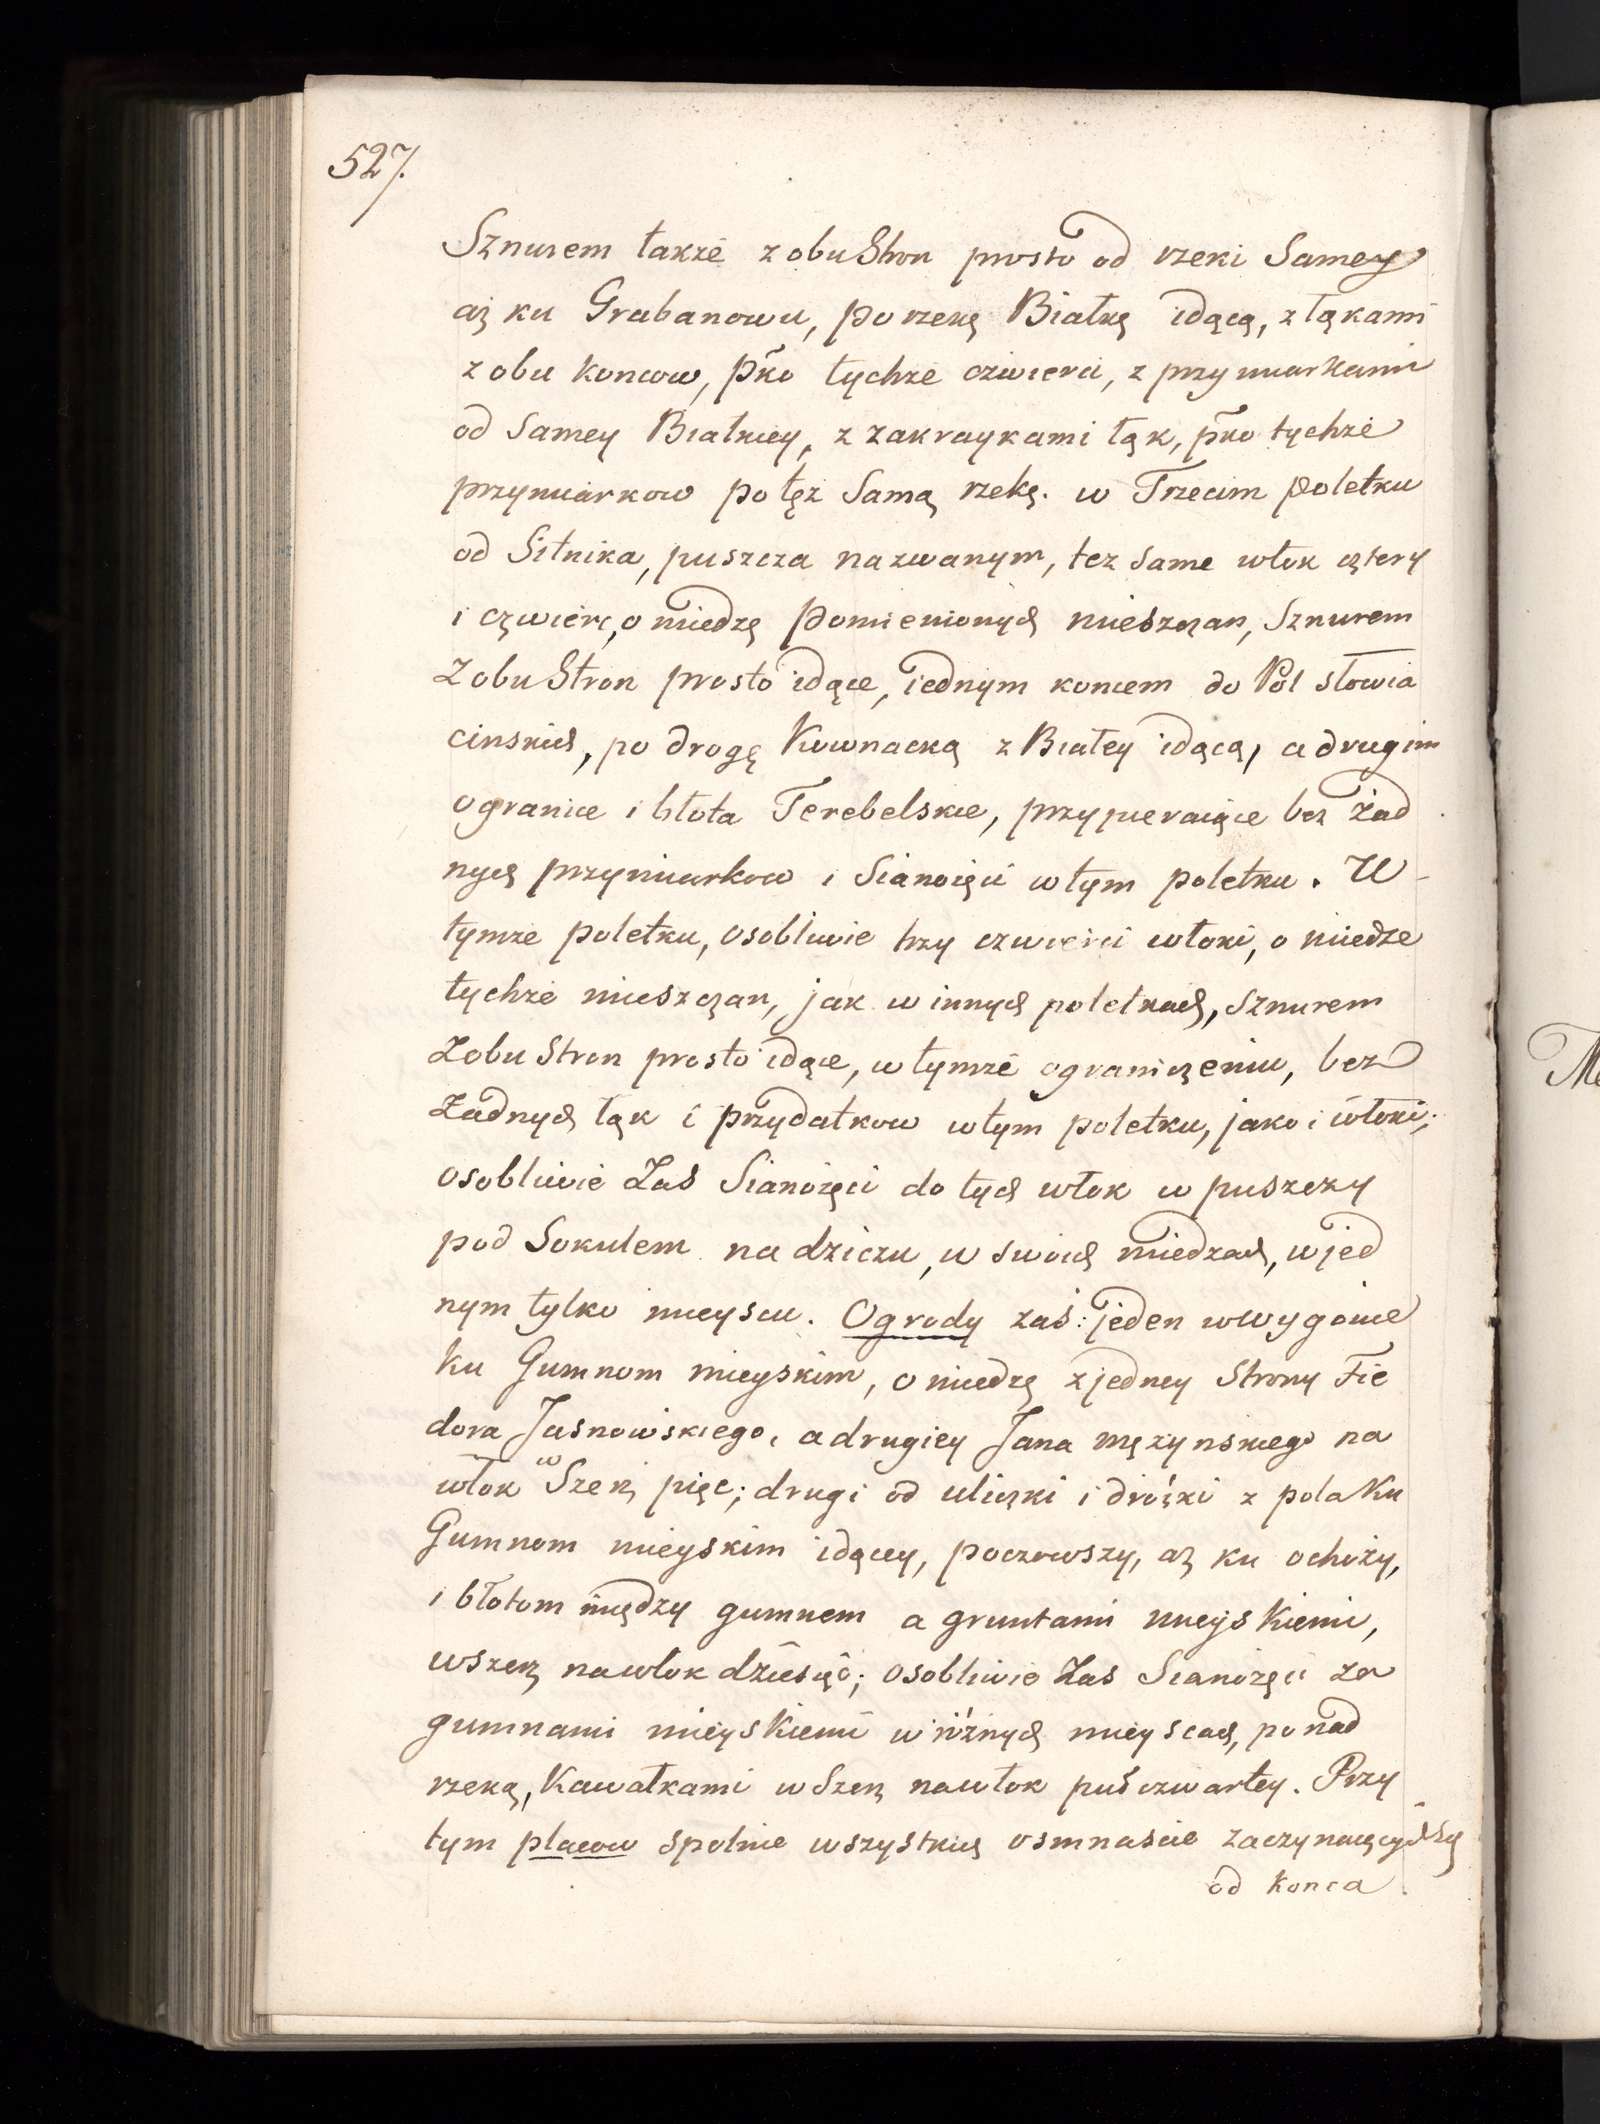 527.
Sznurem także z obu Stron prosto od rzeki Samey
aż ku Grabanowu, po rzekę Białkę idącą, z łąkami
z obu koncow, pko tychże czwierci, z przymiarkami
od Samey Białkiey, z zakraykami łąk, pko tychże
przymiarkow po tęż Samą rzekę. w Trzecim poletku
od Sitnika, puszcza nazwanym, tez same włok cztery
i czwierć, o miedzę pomienionych mieszczan, Sznurem
Z obu Stron prosto idące, jednym koncem do Pol słowia
cinskich, po drogę Kownacką z Białey idącą, a drugim
o granice i błota Terebelskie, przypieraiące bez żad
nych przymiarkow i Sianożęci w tym poletku. W
tymże poletku, osobliwie trzy czwierci włoki, o miedze
tychże mieszczan, jak w innych poletkach, sznurem
Z obu stron prosto idące, w tymże ograniczeniu, bez
Żadnych łąk i przydatkow w tym poletku, jako i włoki;
osobliwie Zaś Sianożęci do tych włok w puszczy
pod Sokulem na dziczu, w swoich miedzach, w jed
nym tylko mieyscu. Ogrody zaś: jeden w wygonie
ku Gumnom mieyskim, o miedzę z jedney Strony Fie
dora Jasnowskiego, a drugiey Jana Mężynskiego na
włok w Szerz pięc; drugi od uliczki i dróżki z pola Ku
Gumnom mieyskim idącey, poczowszy, aż ku ochoży,
i błotom między gumnem a gruntami mieyskiemi,
wszerz na włok dziesięć; osobliwie Zaś Sianożęci za
gumnami mieyskiemi w różnych mieyscach, ponad
rzeką, Kawałkami w Szerz na włok puł czwartey. Przy
tym placow spolnie wszystkich osmnascie zaczynaiących się
od konca